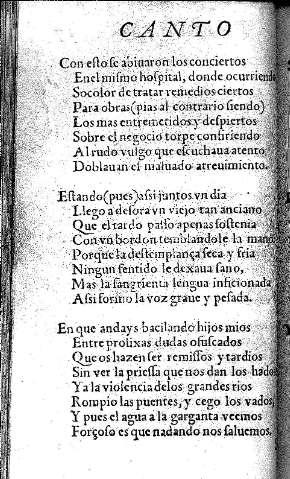 CANTO
Con esto se abiuaron los conciertos
En el mismo hospital, donde ocurriendo
So color de tratar remedios ciertos
Para obras (pias al contrario siendo)
Los mas entremetidos y despiertos
Sobre el negocio torpe confiriendo
Al rudo vulgo que escuchaua atento,
Doblauan el maluado atreuimiento.
Estando (pues) assi juntos vn dia
Llego a desora vn viejo tan anciano
Que el tardo passo apenas sostenia
Con vn bordon temblandole la mano
Porque la destemplança seca y fria
Ningun sentido le dexaua sano,
Mas la sangrienta lengua inficionada
Assi formo la voz graue y pesada.
En que andays bacilando hijos mios
Entre prolixas dudas ofuscados
Que os hazen ser remissos y tardios
Sin ver la priessa que nos dan los hados
Ya la violencia de los grandes rios
Rompio las puentes, y cego los vados,
Y pues el agua a la garganta veemos
Forçoso es que nadando nos saluemos.